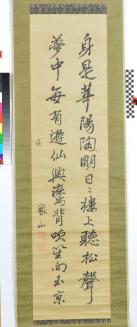 身是華陽陶明日〻樓上聽松聲
夢中每有遊仙興鸞背吹笙向玉京